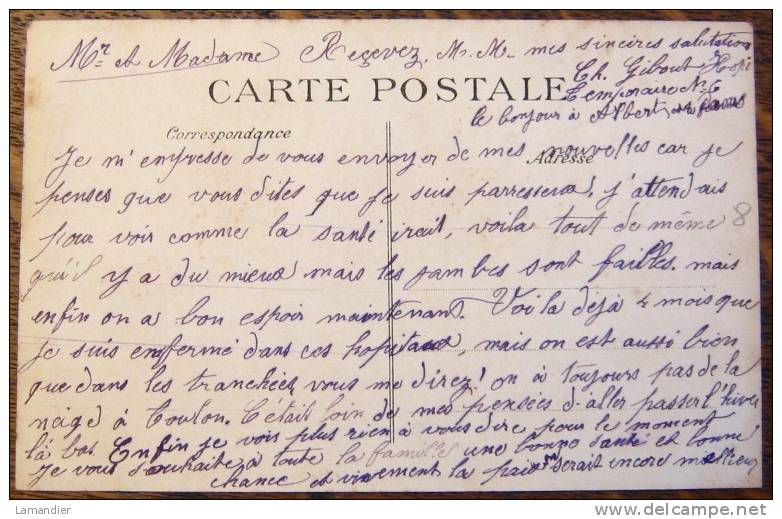 Mr et Madame Reçevez, M. M. mes sincères salutation
Ch. Gibout Hopi
CARTE POSTALE
Temporaire No 6
le bonjour à Albert
Correspondance
Adresse
Je m'empresse de vous envoyer de mes nouvelles car je
penses que vous dites que je suis parresseux, j'attendais
pour voir comme la santé irait, voila tout de même
8
qu'il y a du mieux mais les jambes sont faibles. mais
enfin on a bon espoir maintenant. Voila déjà 4 mois que
je suis enfermé dans ces hopitaux, mais on est aussi bien
que dans les tranchées, vous me direz! on à toujours pas de la
neige à Toulon. C'était loin de mes pensées d'aller passer l'hiver
là bas. Enfin je vois plus rien à vous dire pour le moment
Je vous souhaite à toute la famille une bonne santé et bonne
chance et vivement la paix serait encore meilleur
Lamandier
http://www.delcampe.net